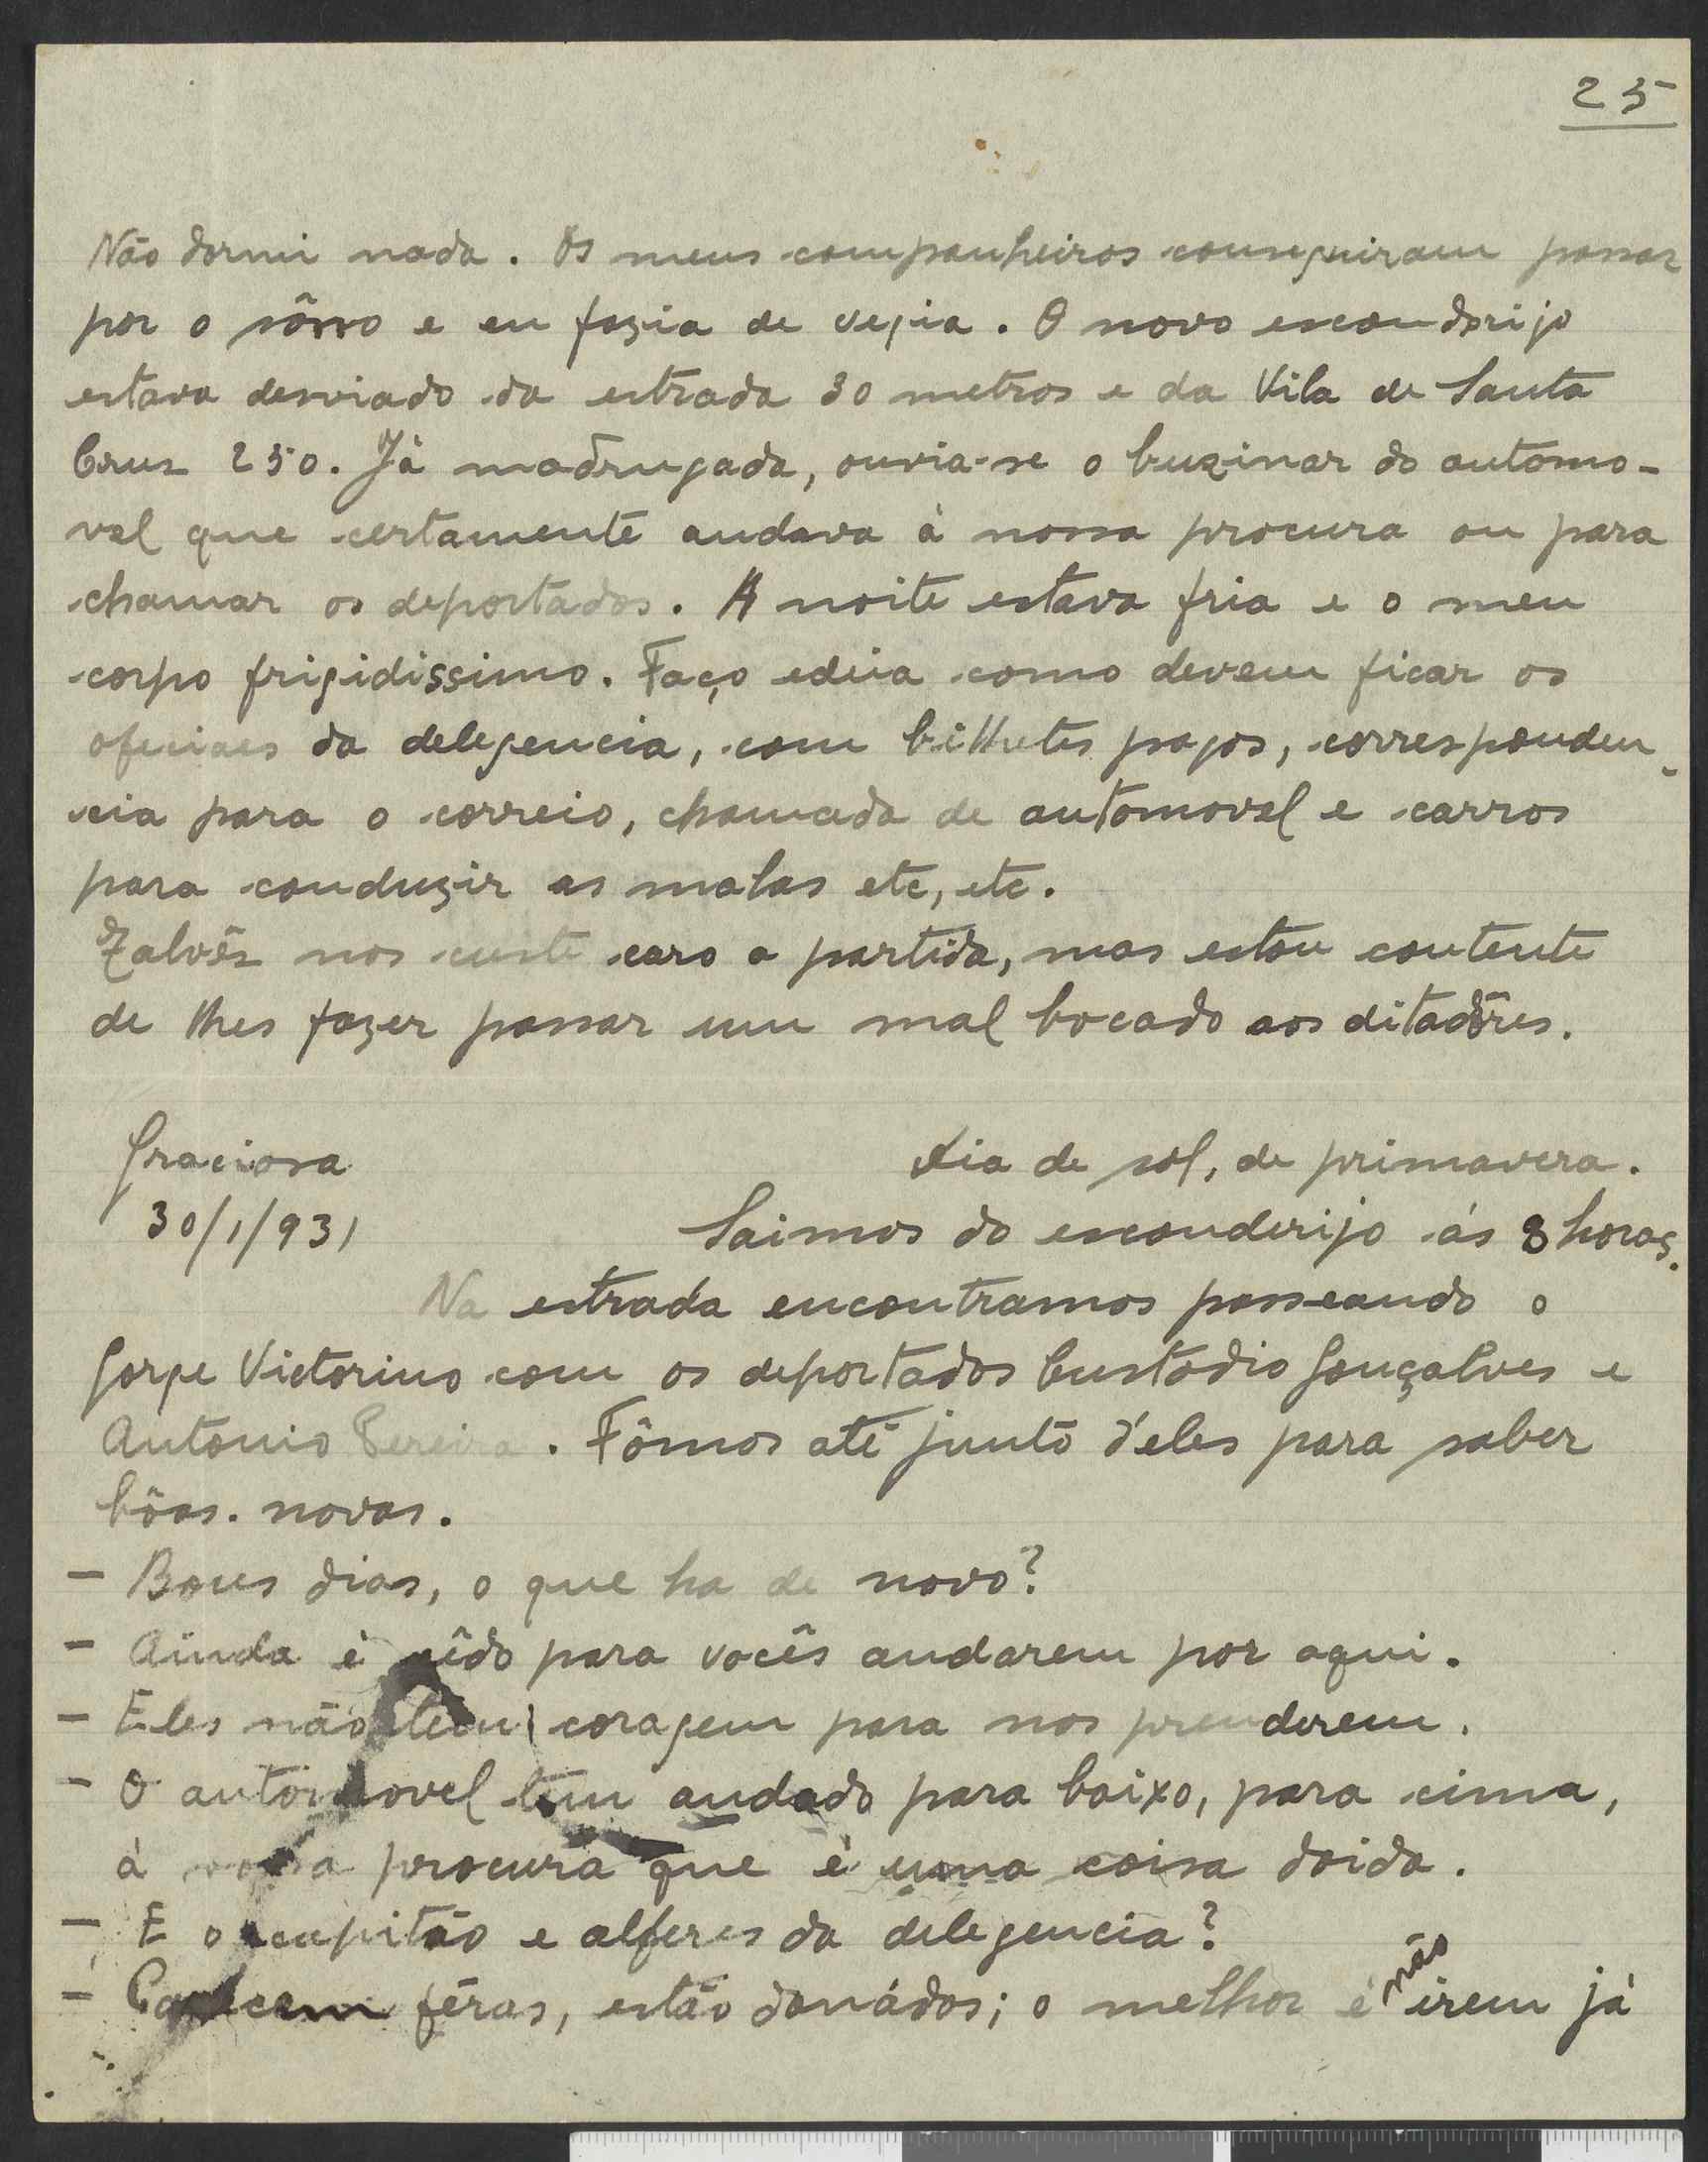 25
Não dormi nada. Os meus companheiros conseguiram passar
por o sôno e eu fazia de vegia. O novo esconderijo
estava desviado da estrada 30 metros e da Vila de Santa
Crus 250. Já madrugada, ouvia-se o buzinar do automo-
vel que certamente andava à nossa procura ou para
chamar os deportados. A noite estava fria e o meu
corpo frigidissimo. Faço edeia como devem ficar os
ofeciaes da delegencia, com bilhetes pagos, corresponden-
cia para o correio, chamada de automovel e carros
para conduzir as malas etc, etc.
Talvês nos custe caro a partida, mas estou contente
de lhes fazer passar um mal bocado aos ditadôres.
Graciosa dia de sol, de primavera.
30/1/931 Saimos do esconderijo ás 8 horas.
Na estrada encontramos passeando o
Jorge Victorino com os deportados Custodio Gonçalves e
Antonio Pereira. Fômos até junto d'eles para saber
bôas. novas.
- Bons dias, o que ha de novo?
- Ainda è cêdo para vocês andarem por aqui.
- Eles não teem coragem para nos prenderem.
- O automovel tem andado para baixo, para cima,
à vossa procura que è uma coisa doida.
- E o capitão e alferes da delegencia?
- Parecem féras, estão danádos; o melhor é não irem já